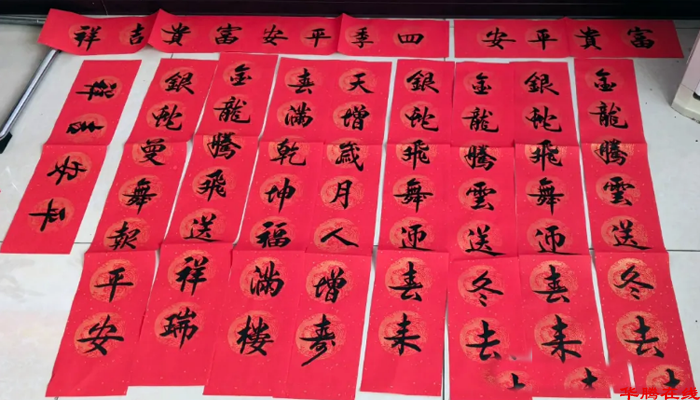 富貴平安
四季平安富貴吉祥
金龍騰雲送冬去
銀蛇飛舞迎春来
金龍騰雲送冬去
銀蛇飛舞迎春来
天增歲月人增壽
春滿乾坤福滿樓
金龍騰飛送祥瑞
銀蛇曼舞報平安
平安吉祥
华腾在线